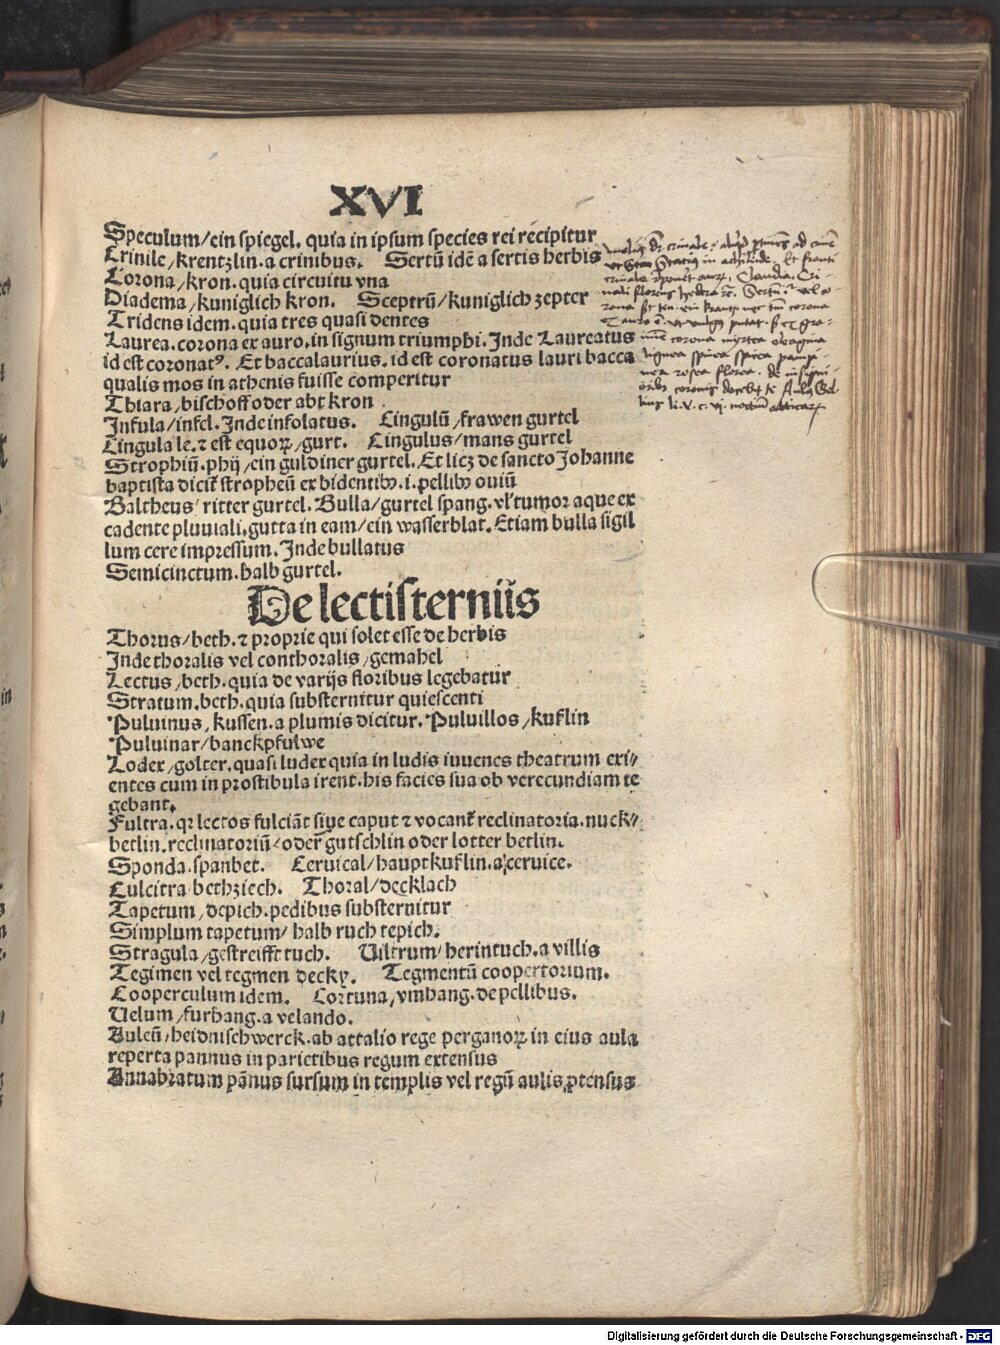 XVI
Speculum/ein spiegel. quia in ipsum species rei recipitur
Crinile/krentzlin.a crinibus. Sertū idē a sertis herbis
Corona/kron.quia circuitu vna
Diadema/kuniglich kron. Sceptrū/kuniglich zepter
Tridens idem.quia tres quasi dentes
Laurea.corona ex auro.in signum triumphi.Inde Laureatus
id est coronatꝰ. Et baccalaurius.id est coronatus lauri bacca
qualis mos in athenis fuisse comperitur
Thiara/bischoff oder abt kron
Infula/infel.Inde infolatus. Cingulū/frawen gurtel
Cingula le.⁊ est equoꝝ/gurt. Cingulus/mans gurtel
Strophiū.phij/ein guldiner gurtel.Et licꝫ de sancto Johanne
baptista dicit̄ stropheū ex bidentibꝰ.i.pellibꝰ ouiū
Baltheus/ritter gurtel.Bulla/gurtel spang.vl̓ tumor aque ex
cadente pluuiali.gutta in eam/ein wasserblat.Etiam bulla sigil
lum cere impressum.Inde bullatus
Semicinctum.halb gurtel.
De lectisterniis
Thorus/beth.⁊ proprie qui solet esse de herbis
Inde thoralis vel conthoralis/gemahel
Lectus/beth.quia de varijs floribus legebatur
Stratum.beth.quia substernitur quiescenti
Puluinus/kussen.a plumis dicitur.Puluillos/kuslin
Puluinar/banckpfulwe
Lodex/golter.quasi ludex quia in ludis iuuenes theatrum exi⸗
entes cum in prostibula irent.his facies sua ob verecundiam te
gebant.
Fultra.qꝛ lectos fulciāt siue caput ⁊ vocant̄ reclinatoria.nuck⸗
betlin.reclinatoriū/oder gutschlin oder lotter betlin.
Sponda.spanbet. Ceruical/hauptkuslin.a ceruice.
Culcitra bethziech. Thoral/decklach
Tapetum/depich.pedibus substernitur
Simplum tapetum/halb ruch tepich.
Stragula/gestreifft tuch. Uiltrum/herintuch.a villis
Tegimen vel tegmen decky. Tegmentū coopertorium.
Cooperculum idem. Cortuna/vmhang.de pellibus.
Uelum/furhang.a velando.
Auleū/heidnischwerck.ab attalio rege perganoꝝ in eius aula
reperta pannus in parietibus regum extensus
Annabratum pānus sursum in templis vel regū aulis ꝓtensus
Digitalisierung gefördert durch die Deutsche Forschungsgemeinschaft - DFG